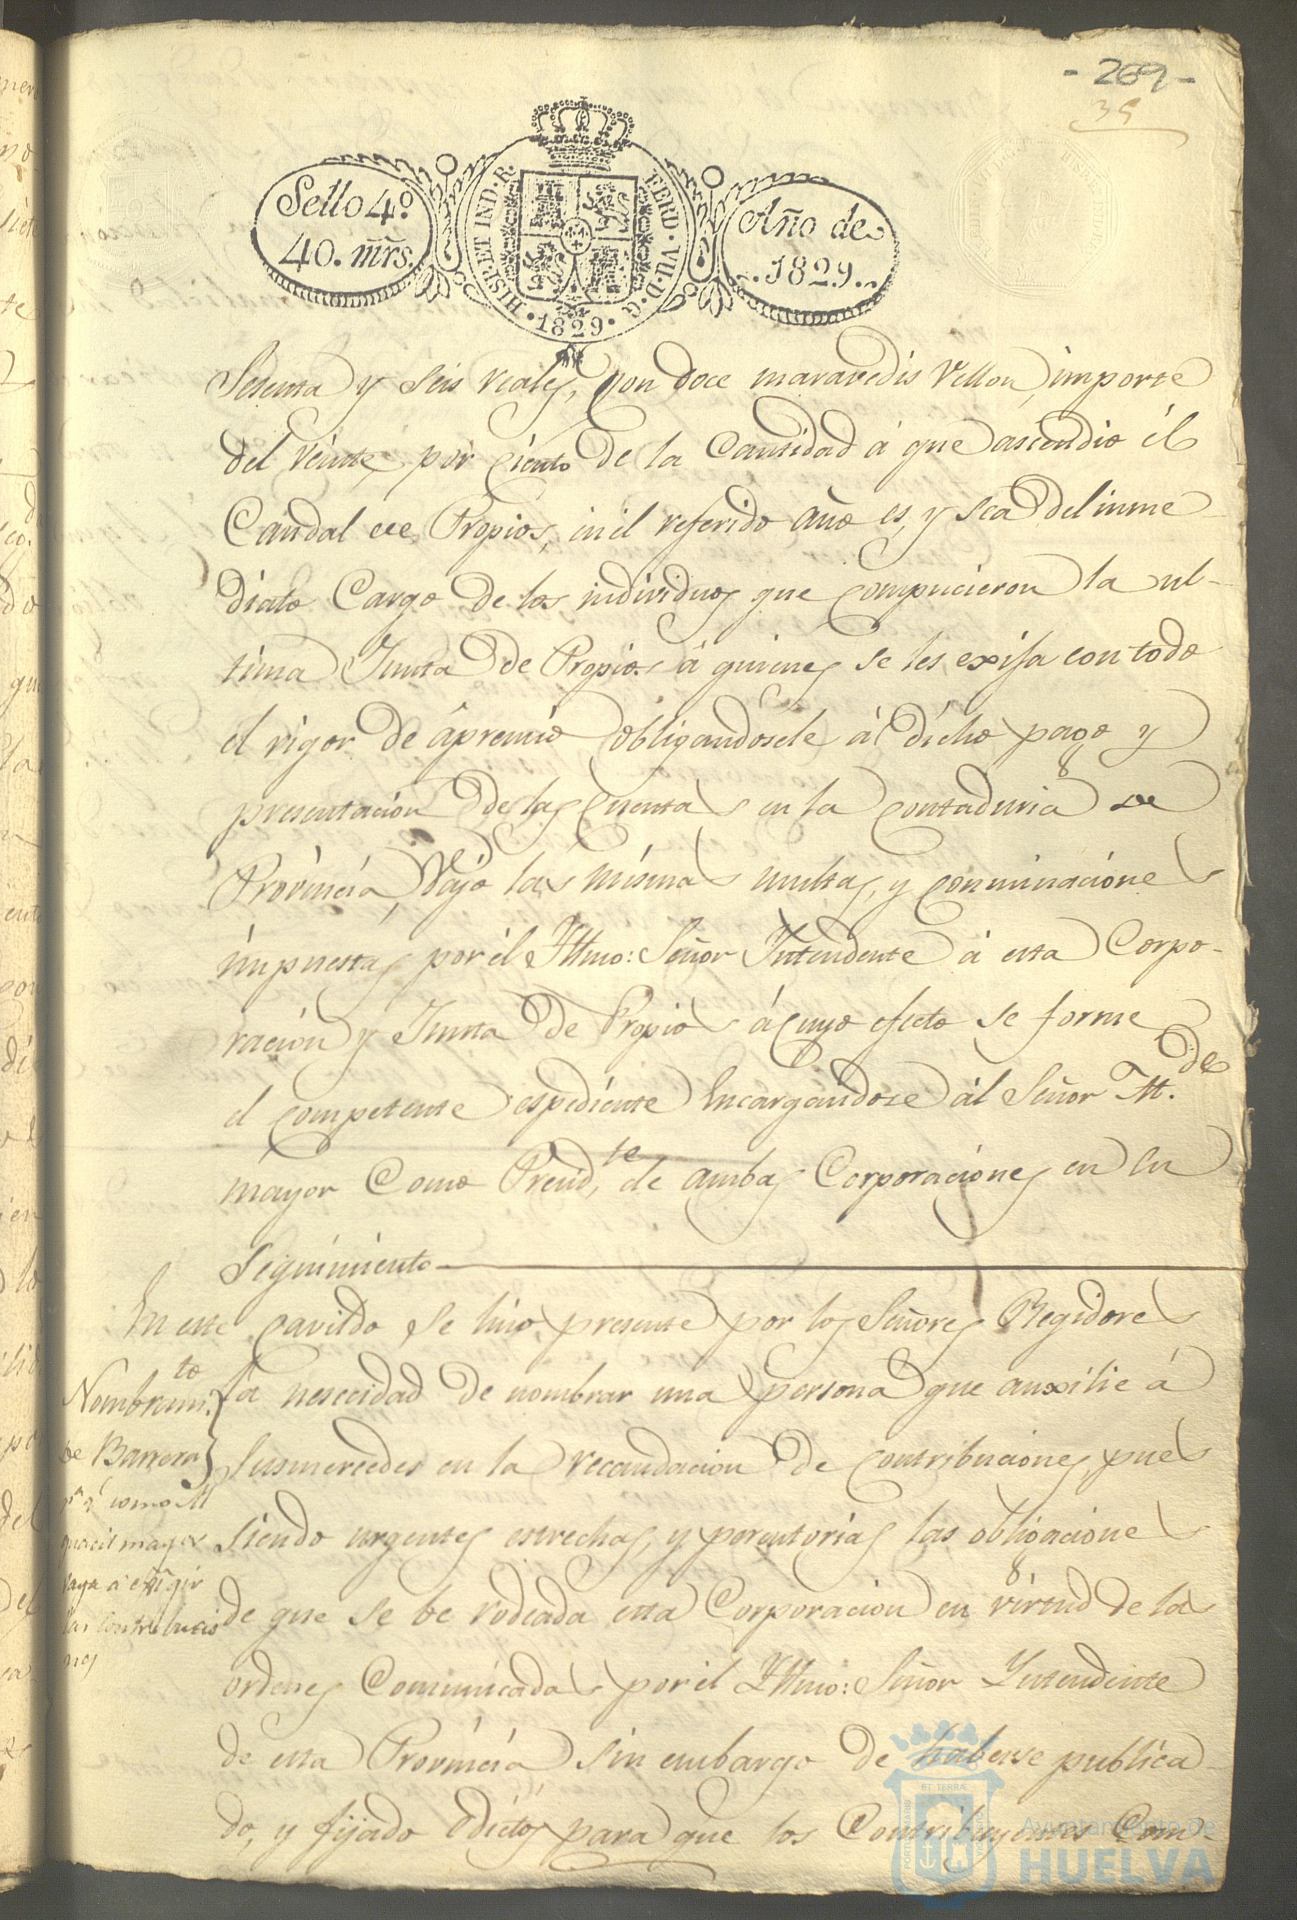 - 269 -
35
Sello 4.º
40. mrs.
HISP. ET IND. R.
FERD. VII. D. G.
1829
Año de
1829.
Setenta y seis reales, con doce maravedis Vellon, importe
del veinte por ciento de la Cantidad á que ascendio el
Caudal de Propios, en el referido año es, y sea del inme
diato Cargo de los individuos que compucieron la ul-
tima Junta de Propios á quienes se les exija con todo
el rigor de apremio obligandosele á dicho pago y
presentacion de las Cuentas en la Contaduria de
Provincia, vajo las mismas multas, y conminaciones
impuestas por el Yllmo: Señor Yntendente á esta Corpo-
racion y Junta de Propios á cuyo efecto se forme
el competente espediente encargandose al Señor Al.de
mayor Como Presid.te de ambas Corporaciones en su
Seguimiento
En este cavildo se hiso presente por los Señores Regidores
Nombram.to
la nesecidad de nombrar una persona que auxilie á
de Barrera
susmercedes en la recaudacion de contribuciones, pues
p.a q.e como Al
guacil mayor
siendo urgentes estrechas, y perentorias las obligaciones
vaya á exigir
de que se ve rodeada esta Corporacion en virtud de las
las contribucio
nes
ordenes Comunicadas por el Yllmo: Señor Yntendente
de esta Provincia sin embargo de haberse publica-
do, y fijado Edictos para que los Contribuyentes Com-
Ayuntamiento de
HUELVA